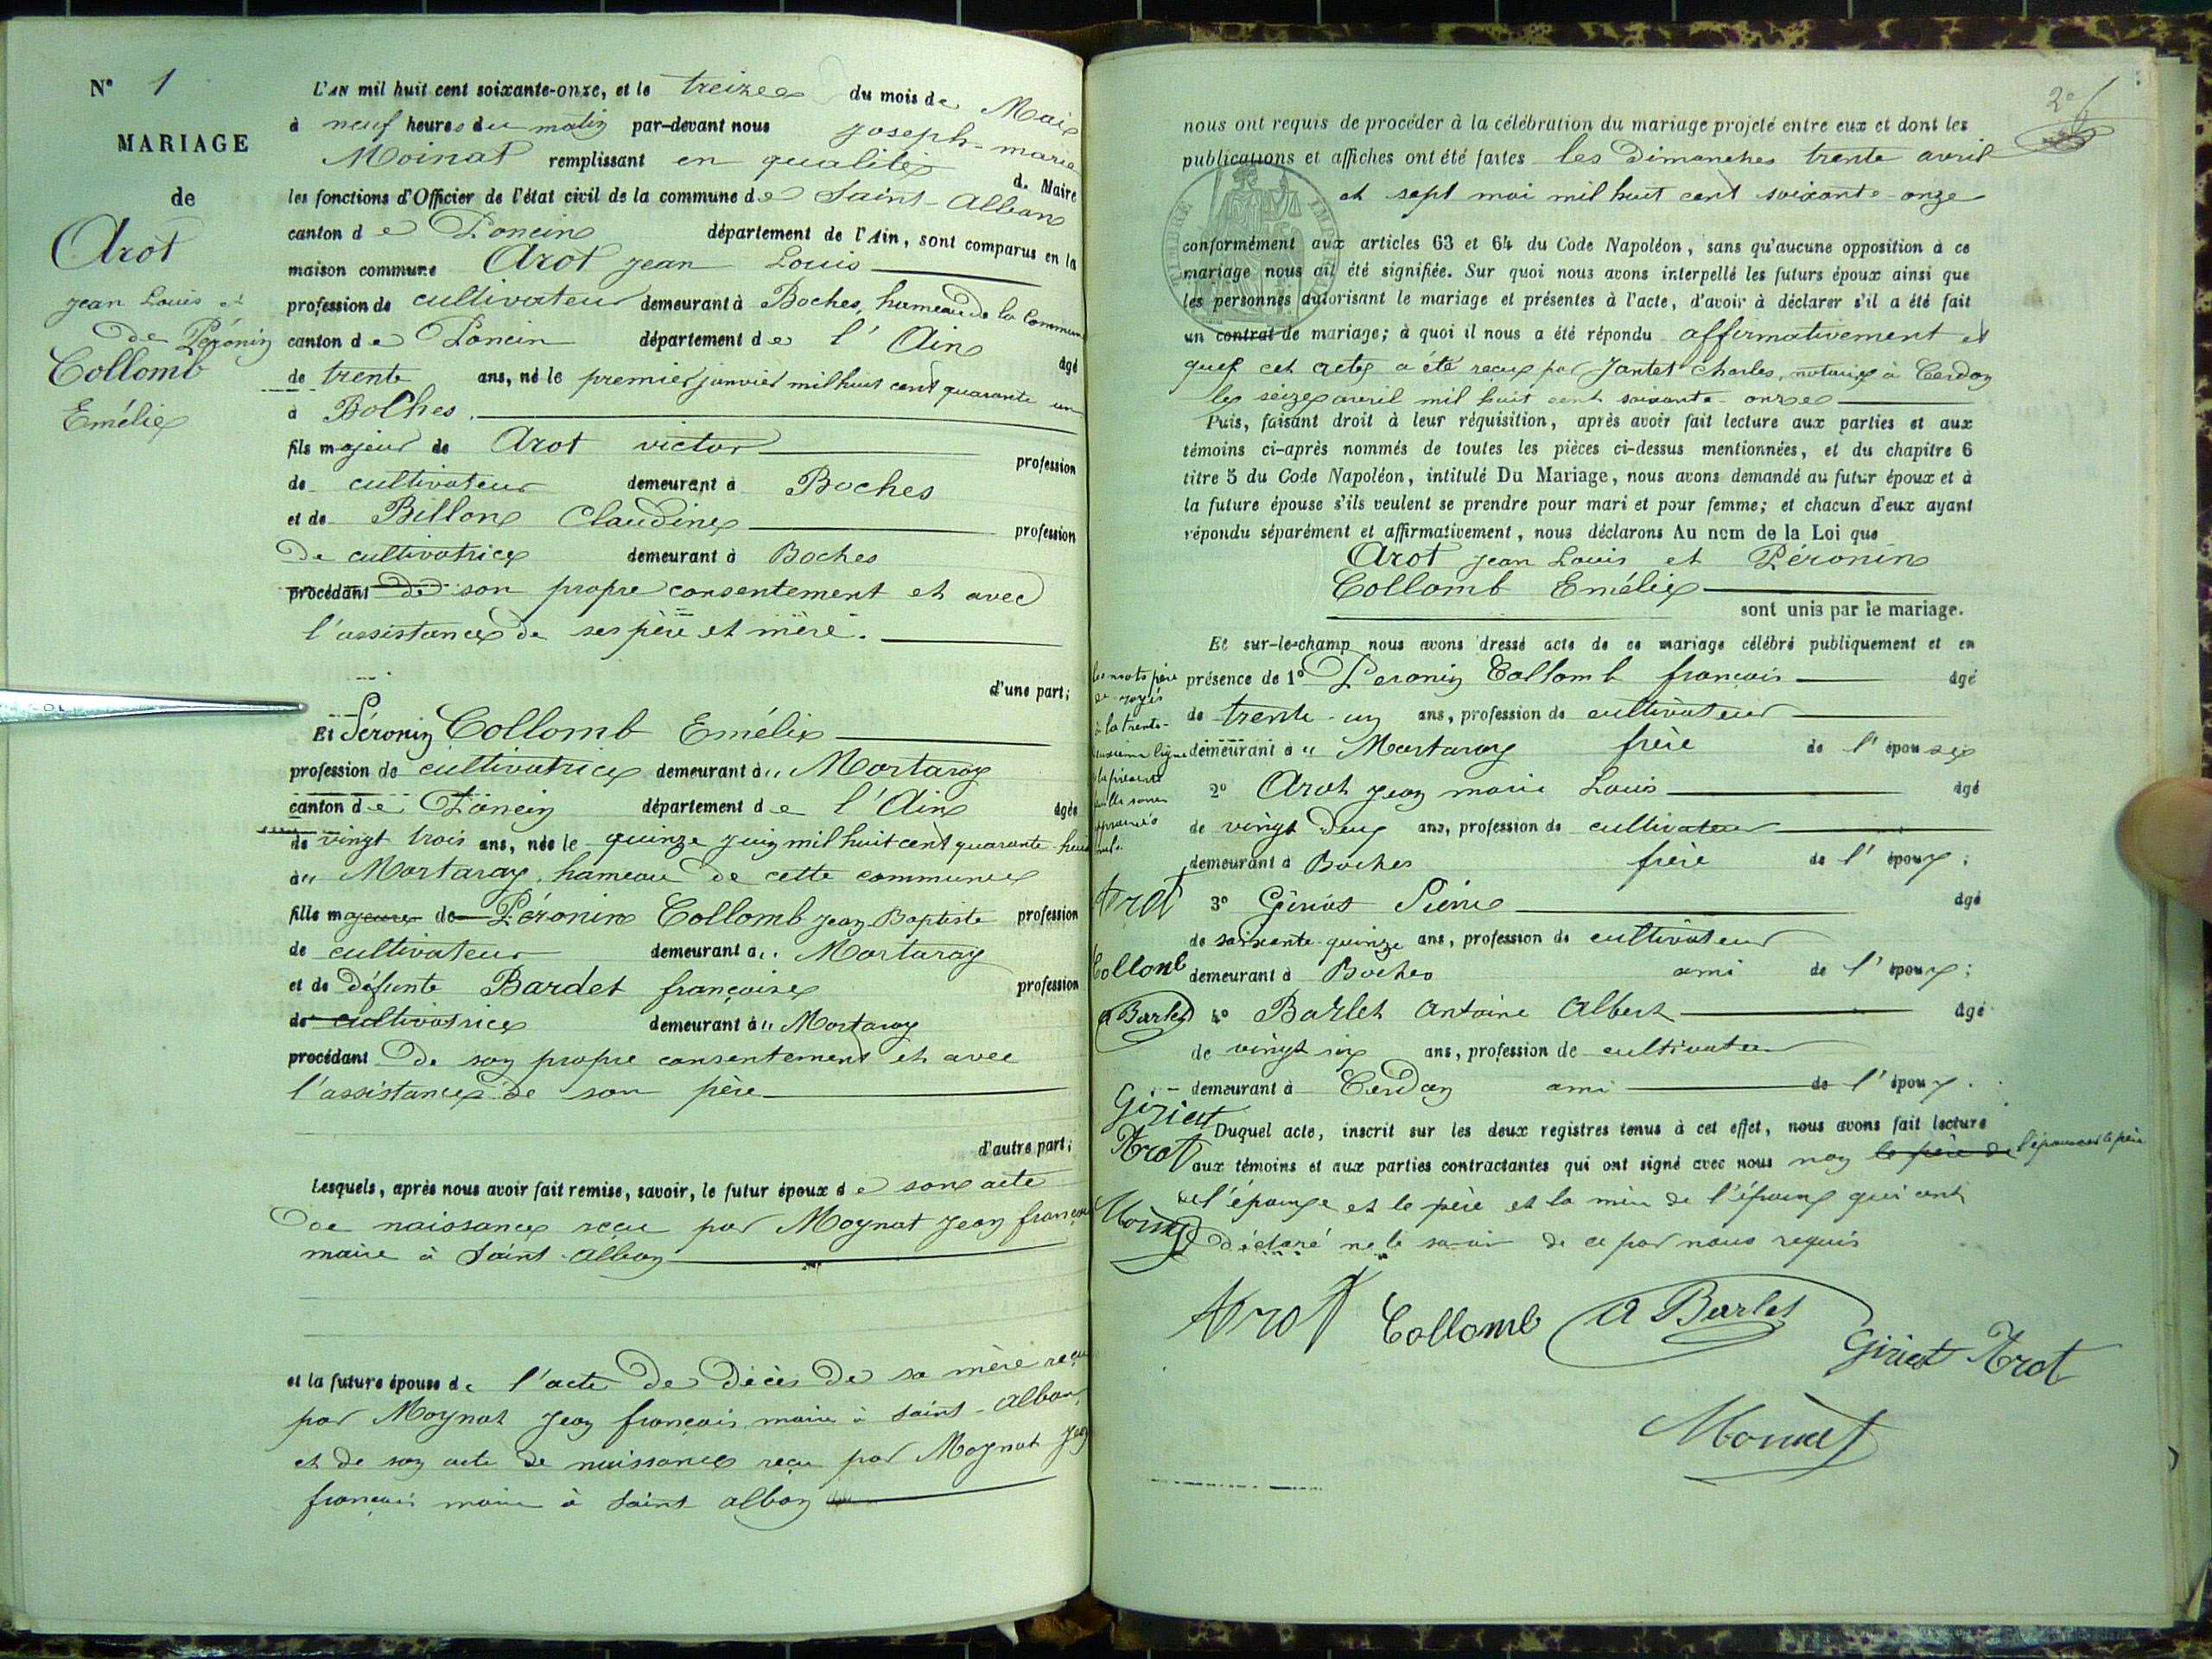 N° 1
MARIAGE
de
Arot
Jean Louis et
de Péronin
Collomb
Emélie
L'AN mil huit cent soixante-onze, et le treize du mois de Mai
à neuf heures du matin par-devant nous Joseph-marie
Moinat remplissant en qualité de Maire
les fonctions d'Officier de l'état civil de la commune de Saint-Alban
canton de Poncin département de l'Ain, sont comparus en la
maison commune Arot Jean Louis
profession de cultivateur demeurant à Boches, hameau de la Commune
canton de Poncin département de l'Ain âgé
de trente ans, né le premier janvier mil huit cent quarante un
à Boches
fils majeur de Arot victor profession
de cultivateur demeurant à Boches
et de Billon Claudine profession
de cultivatrice demeurant à Boches
procédant de son propre consentement et avec
l'assistance de ses père et mère.
d'une part;
Et Péronin Collomb Emélie
profession de cultivatrice demeurant à " Mortaray
canton de Poncin département de l'Ain âgée
de vingt trois ans, née le quinze juin mil huit cent quarante huit
à " Mortaray, hameau de cette commune
fille majeure de Péronin Collomb Jean Baptiste profession
de cultivateur demeurant à " Mortaray
et de défunte Bardet françoise profession
de cultivatrice demeurant à " Mortaray
procédant de son propre consentement et avec
l'assistance de son père
d'autre part;
Lesquels, après nous avoir fait remise, savoir, le futur époux de son acte
de naissance reçu par Moynat Jean françois
maire à Saint-Alban
et la future épouse de l'acte de décès de sa mère reçu
par Moynat Jean françois maire à Saint-Alban,
et de son acte de naissance reçu par Moynat Jean
françois maire à Saint alban
2e
nous ont requis de procéder à la célébration du mariage projeté entre eux et dont les
publications et affiches ont été faites les Dimanches trente avril
et sept mai mil huit cent soixante-onze
TIMBRE IMPERIAL
conformément aux articles 63 et 64 du Code Napoléon, sans qu'aucune opposition à ce
mariage nous ait été signifiée. Sur quoi nous avons interpellé les futurs époux ainsi que
les personnes autorisant le mariage et présentes à l'acte, d'avoir à déclarer s'il a été fait
un contrat de mariage; à quoi il nous a été répondu affirmativement et
que cet acte a été reçu par Jantet Charles, notaire à Cerdon
le seize avril mil huit cent soixante-onze
Puis, faisant droit à leur réquisition, après avoir fait lecture aux parties et aux
témoins ci-après nommés de toutes les pièces ci-dessus mentionnées, et du chapitre 6
titre 5 du Code Napoléon, intitulé Du Mariage, nous avons demandé au futur époux et à
la future épouse s'ils veulent se prendre pour mari et pour femme; et chacun d'eux ayant
répondu séparément et affirmativement, nous déclarons Au nom de la Loi que
Arot Jean Louis et Péronin
Collomb Emélie
sont unis par le mariage.
Et sur-le-champ nous avons dressé acte de ce mariage célébré publiquement et en
présence de 1° Peronin Collomb françois âgé
de trente-un ans, profession de cultivateur
demeurant à " Mortaray frère de l'épouse
2° Arot Jean marie Louis âgé
de vingt deux ans, profession de cultivateur
demeurant à Boches frère de l'époux;
3° Giriat Pierre âgé
de soixante-quinze ans, profession de cultivateur
demeurant à Boches ami de l'époux;
4° Barlet Antoine Albert âgé
de vingt six ans, profession de cultivateur
demeurant à Cerdon ami de l'époux.
Duquel acte, inscrit sur les deux registres tenus à cet effet, nous avons fait lecture
aux témoins et aux parties contractantes qui ont signé avec nous non le père de l'épouse et le père
de l'épouse et le père et la mère de l'époux qui ont
déclaré ne le savoir de ce par nous requis
les mots père
de rayés
à la trente-
deuxième ligne
Arot
Collomb
A Barlet
Giriat
Arot
Moinat
Arot Collomb A Barlet
Giriat Arot
Moinat